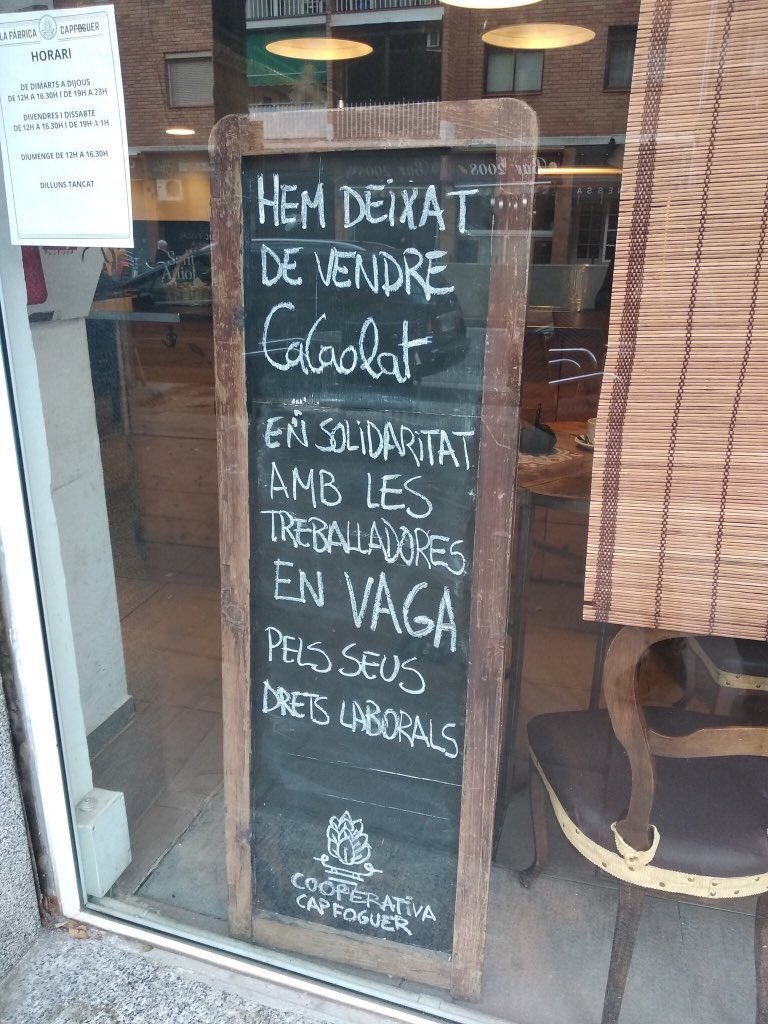 LA FÀBRICA CAPFOGUER
HORARI
DE DIMARTS A DIJOUS
DE 12H A 16.30H I DE 19H A 23H
DIVENDRES I DISSABTE
DE 12H A 16.30H I DE 19H A 1H
DIUMENGE DE 12H A 16.30H
DILLUNS TANCAT
HEM DEIXAT
DE VENDRE
CaCaolat
EN SOLIDARITAT
AMB LES
TREBALLADORES
EN VAGA
PELS SEUS
DRETS LABORALS
COOPERATIVA
CAPFOGUER
Bar 2008